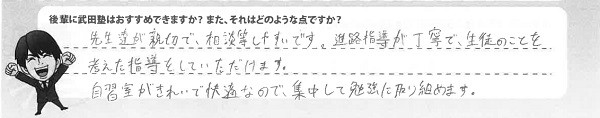 後輩に武田塾はおすすめできますか？また、それはどのような点ですか？
先生達が親切で、相談等しやすいです。進路指導が丁寧で、生徒のことを
考えた指導をしていただけます。
自習室がきれいで快適なので、集中して勉強に取り組めます。